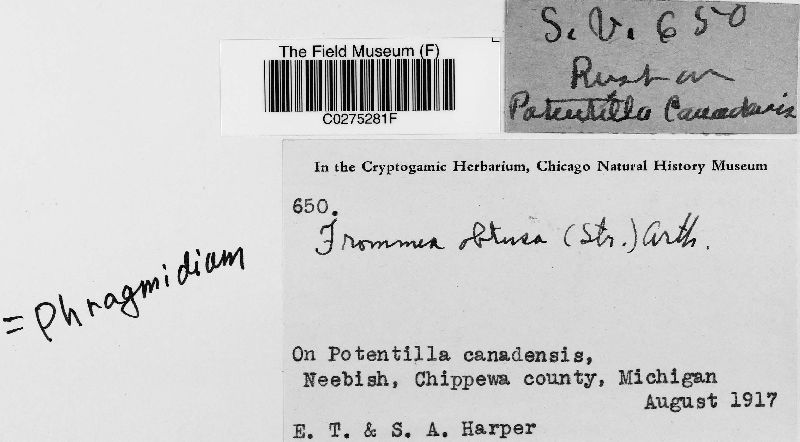 S. V. 650
Rust on
Potentilla Canadensis
The Field Museum (F)
C0275281F
In the Cryptogamic Herbarium, Chicago Natural History Museum
650.
Frommea obtusa (Str.) Arth.
= Phragmidium
On Potentilla canadensis,
Neebish, Chippewa county, Michigan
August 1917
E. T. & S. A. Harper